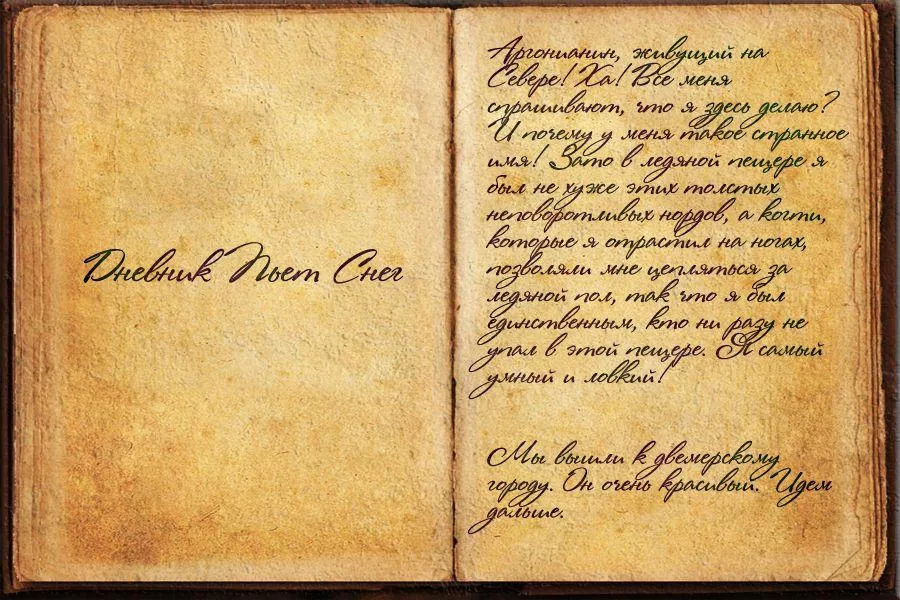 Дневник Пьет Снег
Аргонианин, живущий на
Севере! Ха! Все меня
спрашивают, что я здесь делаю?
И почему у меня такое странное
имя! Зато в ледяной пещере я
был не хуже этих толстых
неповоротливых нордов, а когти,
которые я отрастил на ногах,
позволяли мне цепляться за
ледяной пол, так что я был
единственным, кто ни разу не
упал в этой пещере. Я самый
умный и ловкий!
Мы вышли к двемерскому
городу. Он очень красивый. Идем
дальше.